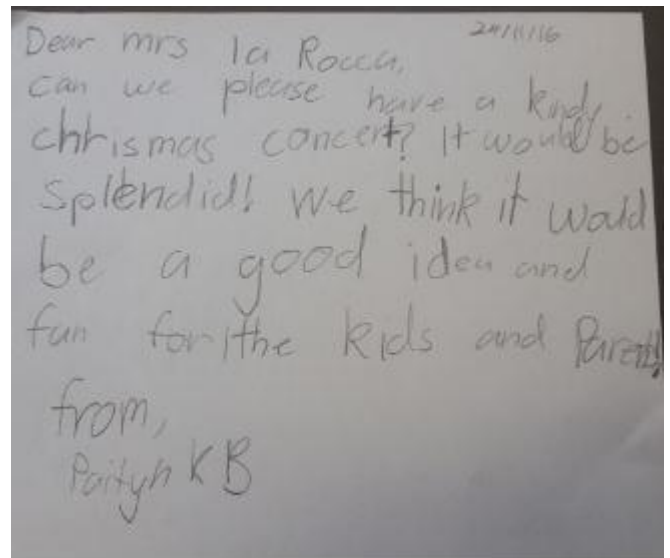 24/11/16
Dear mrs la Rocca,
can we please have a kindy
chrismas concert? It would be
splendid! We think it would
be a good idea and
fun for the kids and Parents!
from,
Paityn K B